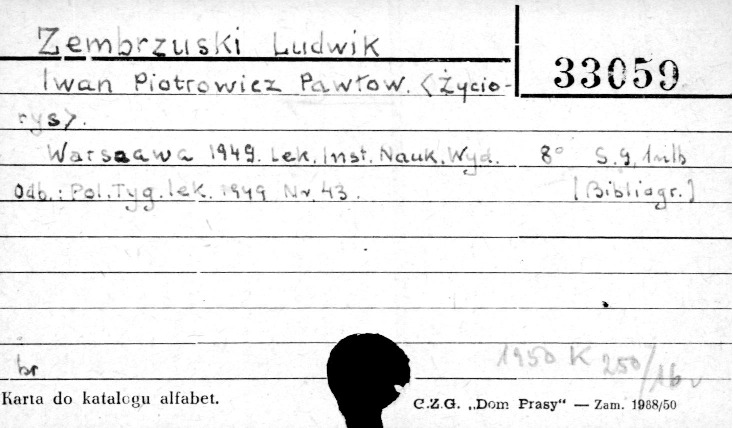 Zembrzuski Ludwik
33059
Iwan Piotrowicz Pawłow. <Życio-
rys>.
Warszawa 1949. Lek. Inst. Nauk. Wyd. 8° S. 9,
Odb.: Pol. Tyg. lek. 1949 Nr. 43. [Bibliogr.]
br
1950 K 250/16
Karta do katalogu alfabet.
C.Z.G. „Dom Prasy“ — Zam. 1988/50